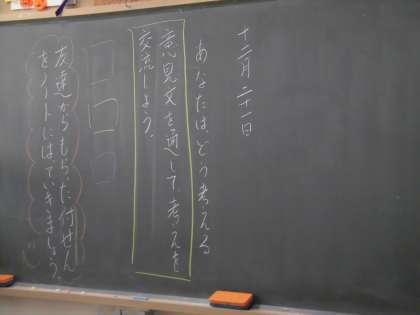 十二月二十一日
あなたは、どう考える
意見文を通して、考えを
交流しよう。
友達からもらったふせん
をノートにはっていきましょう。